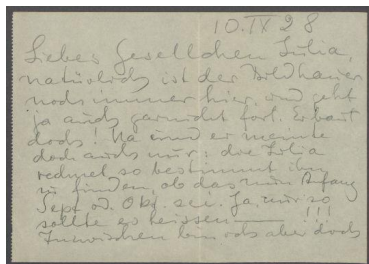 10.IX 28
Liebes Gesellchen Julia,
natürlich ist der Bildhauer
noch immer hier und geht
ja auch garnicht fort. Er baut
doch! Na und er meinte
doch auch nur: die Julia
rechnet so bestimmt ihn
zu finden, ob das nun Anfang
Sept od. Okt. sei. Ja, nur so
sollte es heissen — !!!
Inzwischen bin ich aber doch